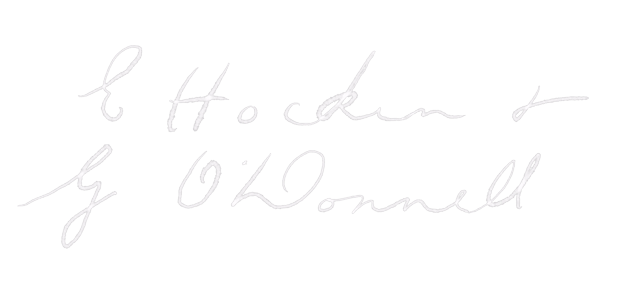 E Hocken &
G O'Donnell